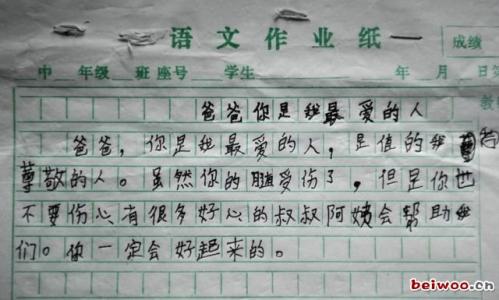 语文作业纸
成绩
中 年级 班 座号 学生 年 月 日
教
爸爸你是我最爱的人
爸爸，你是我最爱的人，是值的我
尊敬的人。虽然你的腿爱伤了，但是你也
不要伤心有很多好心的叔叔阿姨会帮助我
们。你一定会好起来的。
beiwoo.cn